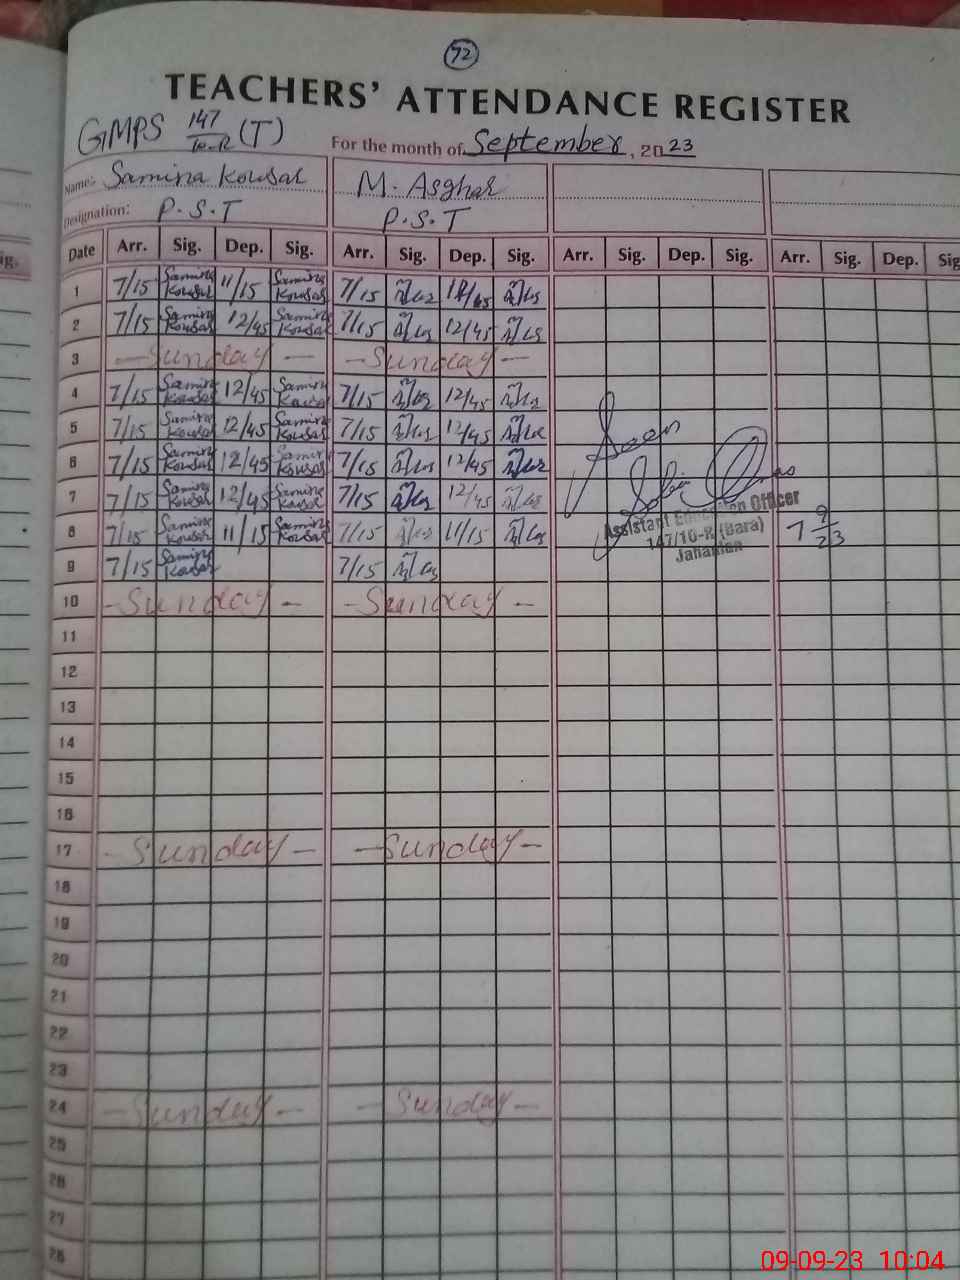 72
TEACHERS' ATTENDANCE REGISTER
GMPS 147/10-R (T) For the month of September, 2023
Name:- Samina Kousar M. Asghar
Designation: P.S.T P.S.T
Date Arr. Sig. Dep. Sig. Arr. Sig. Dep. Sig. Arr. Sig. Dep. Sig. Arr. Sig. Dep. Sig
1 7/15 Samina Kousar 11/15 Samina Kousar 7/15 11/45
2 7/15 Samina Kousar 12/45 Samina Kousar 7/15 12/45
3 —Sunday— —Sunday—
4 7/15 Samina Kousar 12/45 Samina Kousar 7/15 12/45
5 7/15 Samina Kousar 12/45 Samina Kousar 7/15 12/45
6 7/15 Samina Kousar 12/45 Samina Kousar 7/15 12/45
7 7/15 Samina Kousar 12/45 Samina Kousar 7/15 12/45
8 7/15 Samina Kousar 11/15 Samina Kousar 7/15 11/15
9 7/15 Samina Kousar 7/15
Seen
Assistant Education Officer
147/10-R (Bara)
Jahanian
7 9/23
10 -Sunday- -Sunday-
11
12
13
14
15
16
17 -Sunday- -Sunday-
18
19
20
21
22
23
24 -Sunday- -Sunday-
25
26
27
28
ig.
09-09-23 10:04